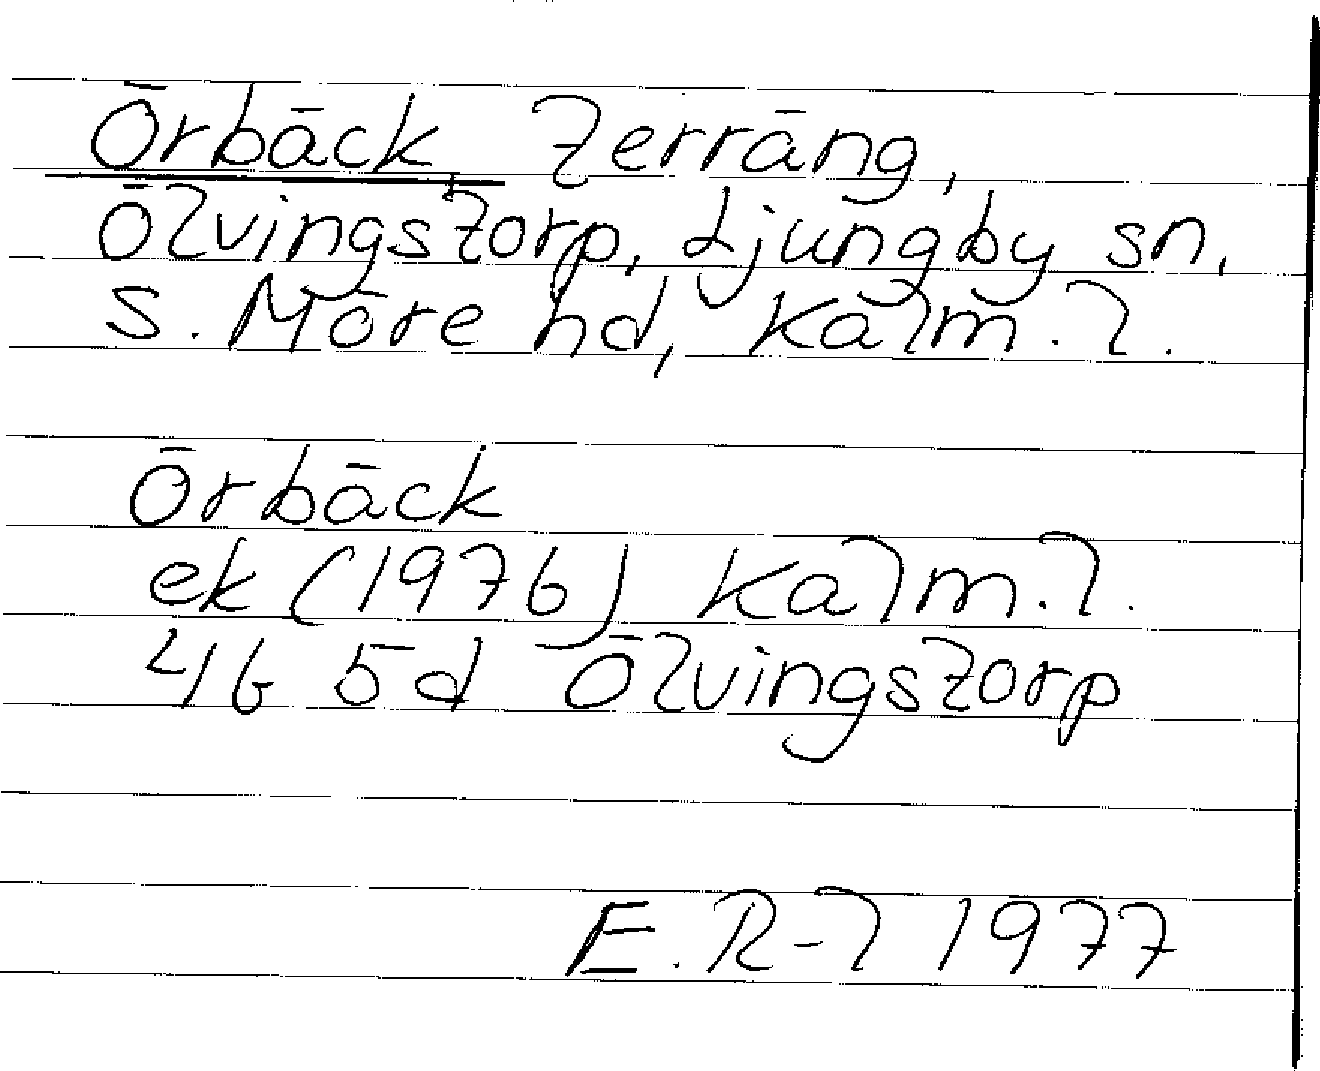 Örbäck Terräng,
Ölvingstorp, Ljungby sn,
S. Möre hd, Kalm. l.
Örbäck
ek (1976) Kalm. l.
4G 5d Ölvingstorp
E. R-l 1977